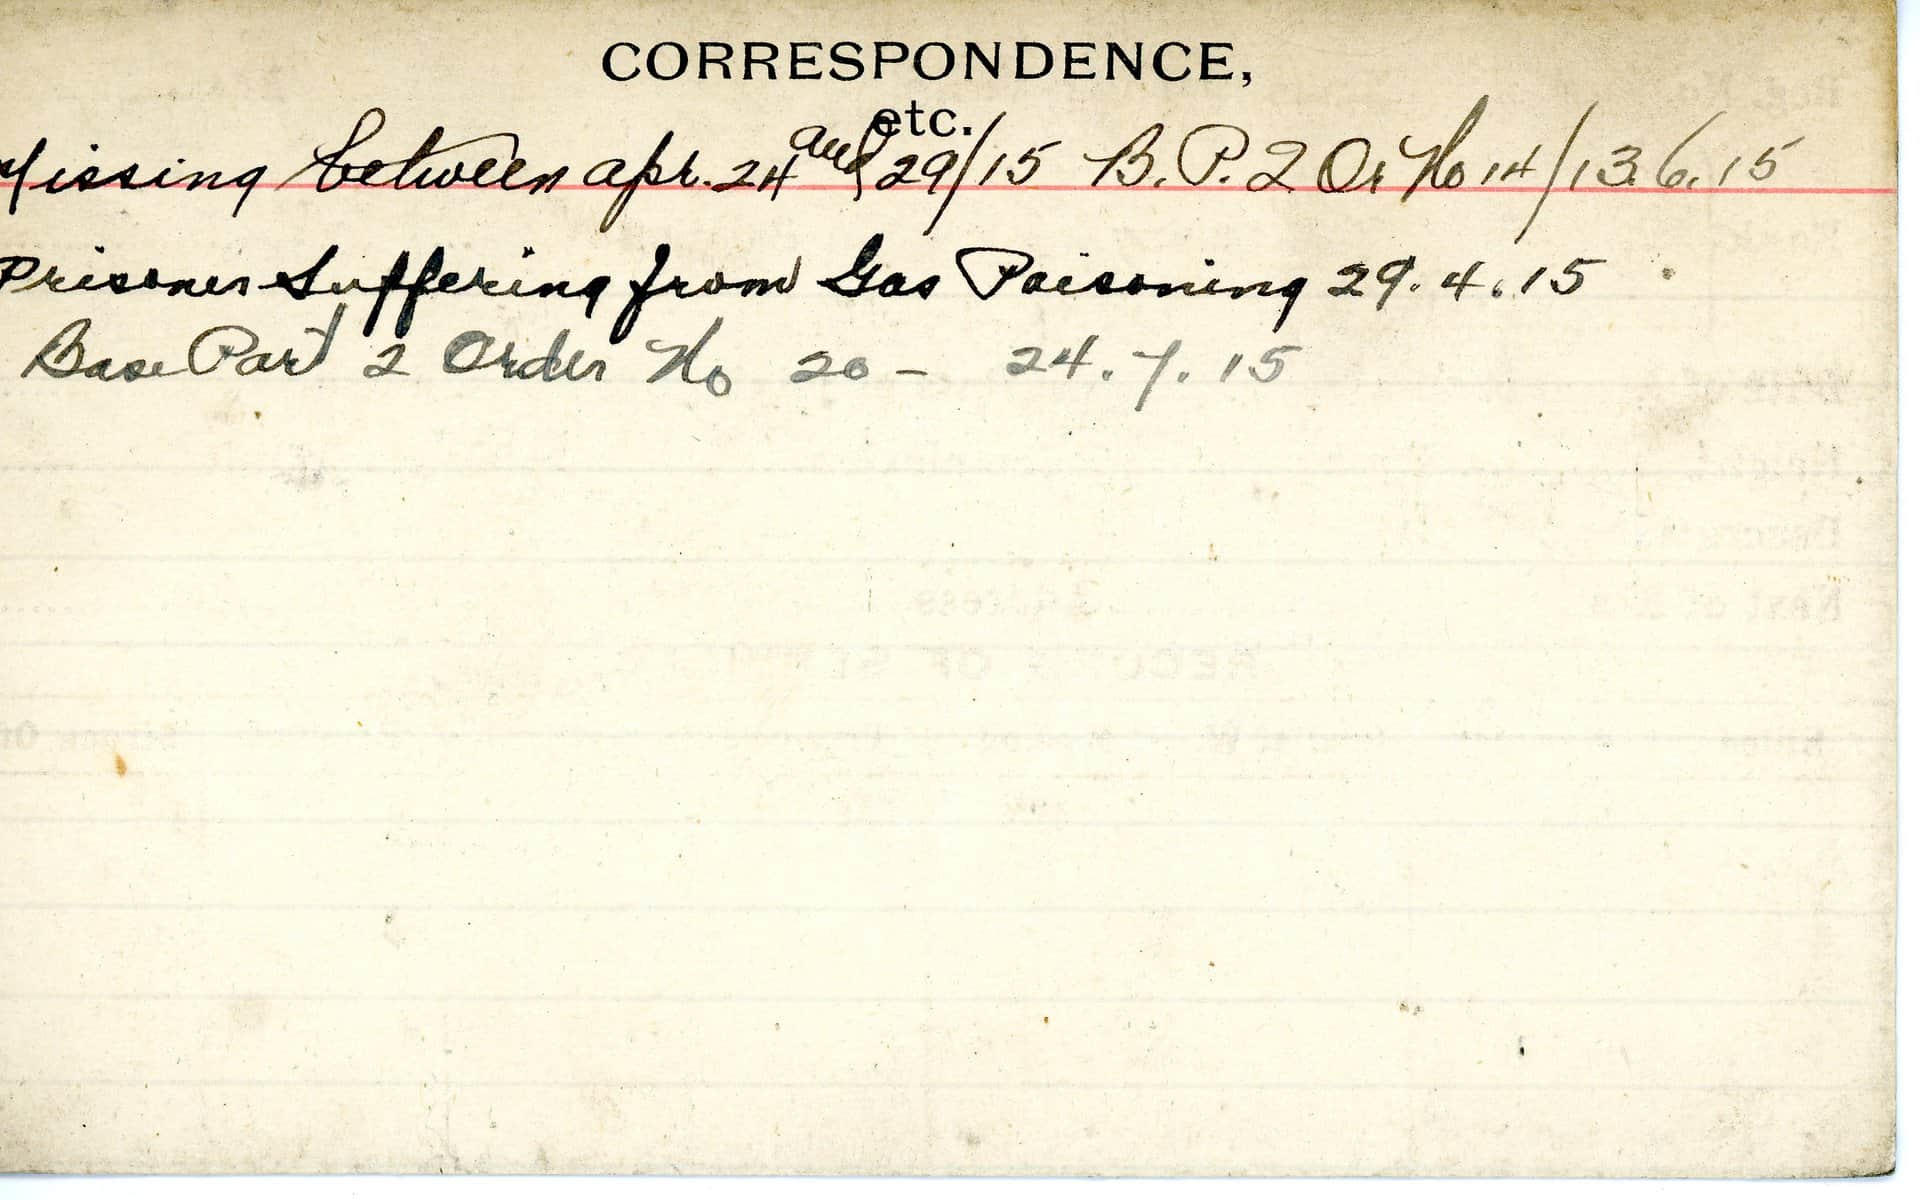 CORRESPONDENCE,
etc.
Missing between apr. 24 and 29/15 B. P. 2 Or No 14/13.6.15
Prisoner Suffering from Gas Poisoning 29.4.15
Base Part 2 Order No 20 - 24.7.15